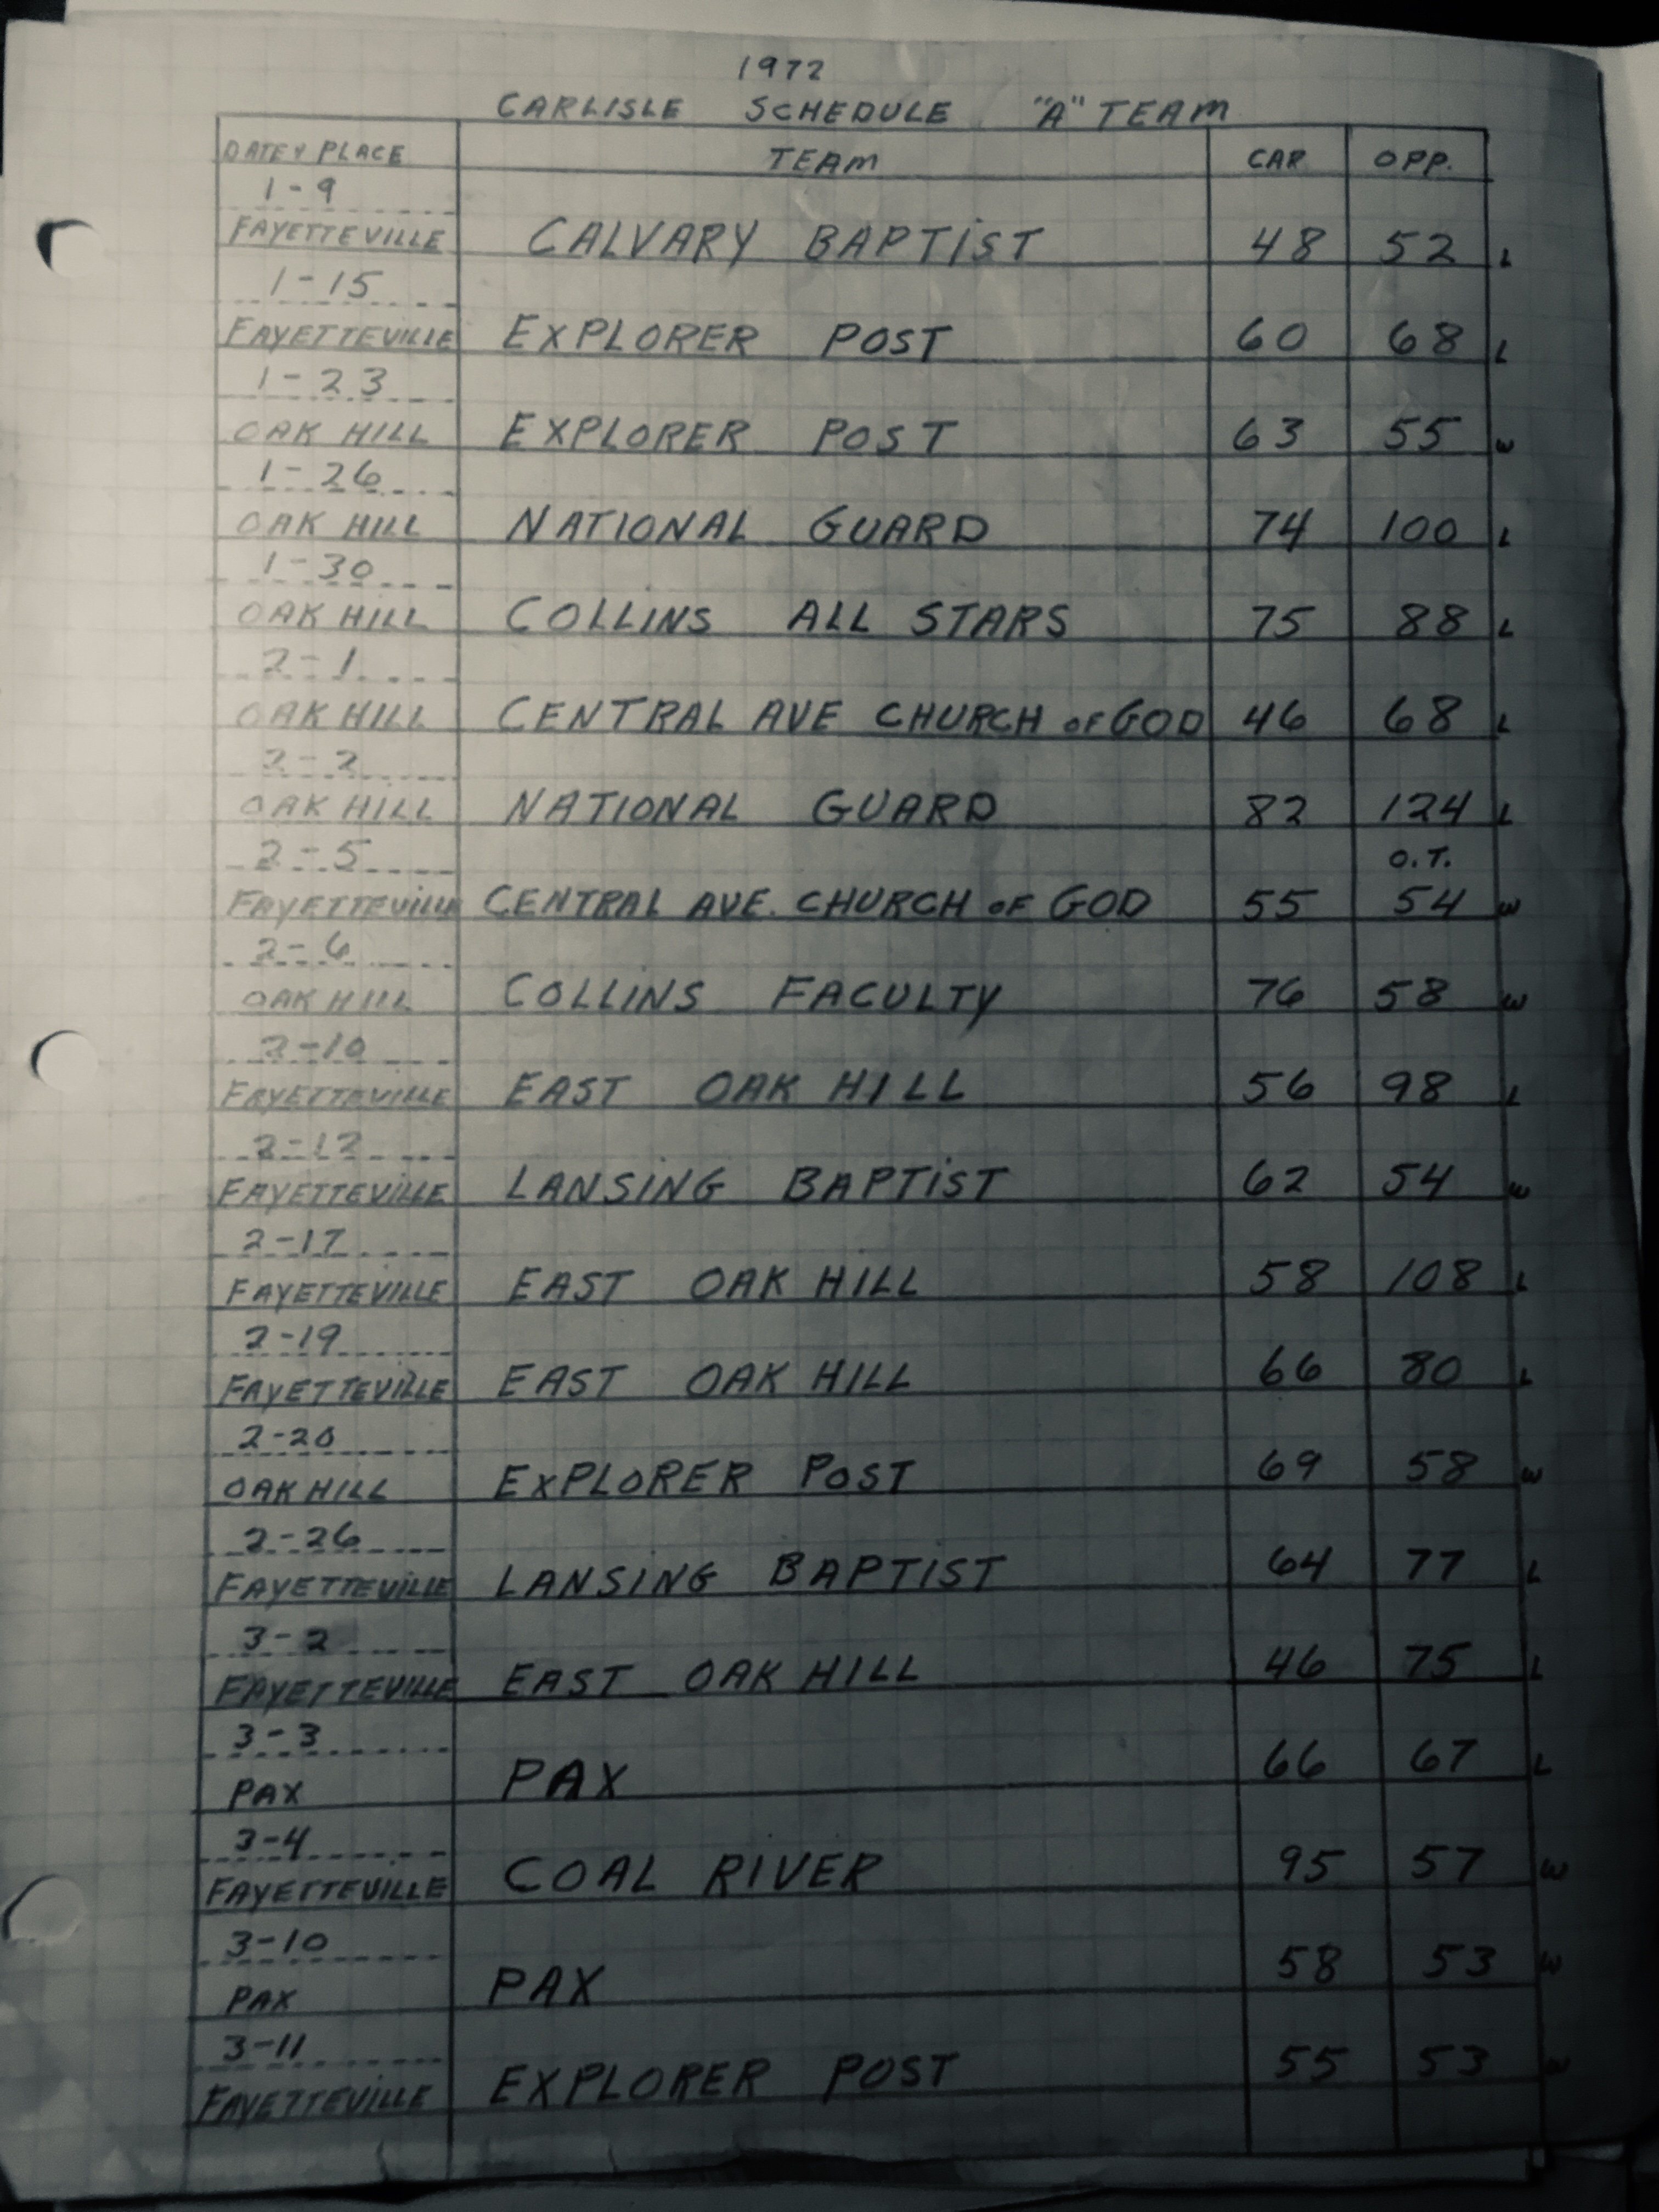 1972
CARLISLE SCHEDULE "A" TEAM
DATE & PLACE TEAM CAR. OPP.
1-9
FAYETTEVILLE CALVARY BAPTIST 48 52 L
1-15
FAYETTEVILLE EXPLORER POST 60 68 L
1-23
OAK HILL EXPLORER POST 63 55 W
1-26
OAK HILL NATIONAL GUARD 74 100 L
1-30
OAK HILL COLLINS ALL STARS 75 88 L
2-1
OAK HILL CENTRAL AVE CHURCH OF GOD 46 68 L
2-2
OAK HILL NATIONAL GUARD 82 124 L
2-5 O.T.
FAYETTEVILLE CENTRAL AVE. CHURCH OF GOD 55 54 W
2-6
OAK HILL COLLINS FACULTY 76 58 W
2-10
FAYETTEVILLE EAST OAK HILL 56 98 L
2-12
FAYETTEVILLE LANSING BAPTIST 62 54 W
2-17
FAYETTEVILLE EAST OAK HILL 58 108 L
2-19
FAYETTEVILLE EAST OAK HILL 66 80 L
2-20
OAK HILL EXPLORER POST 69 58 W
2-26
FAYETTEVILLE LANSING BAPTIST 64 77 L
3-2
FAYETTEVILLE EAST OAK HILL 46 75 L
3-3
PAX PAX 66 67 L
3-4
FAYETTEVILLE COAL RIVER 95 57 W
3-10
PAX PAX 58 53 W
3-11
FAYETTEVILLE EXPLORER POST 55 53 W